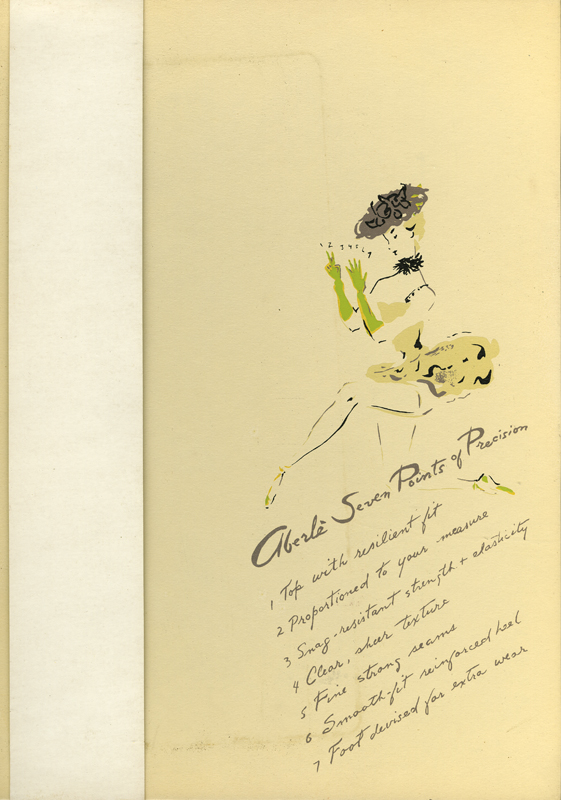 1 2 3 4 5 6 7
Aberlè Seven Points of Precision
1 Top with resilient fit
2 Proportioned to your measure
3 Snag-resistant strength + elasticity
4 Clear, sheer texture
5 Fine strong seams
6 Smooth-fit reinforced heel
7 Foot devised for extra wear